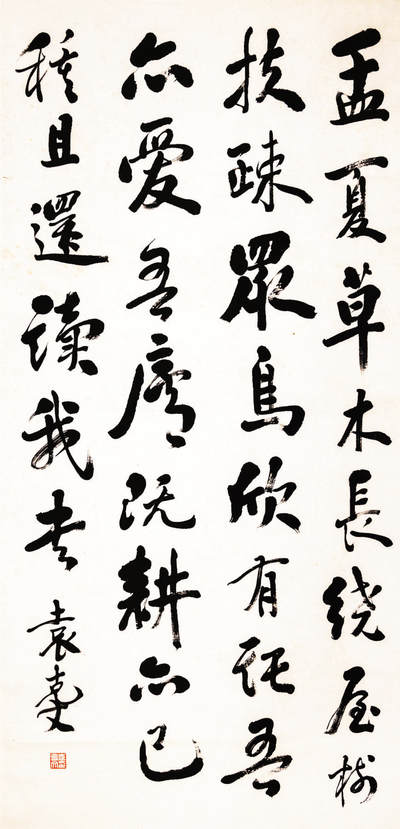 孟夏草木長繞屋樹
扶疎眾鳥欣有託吾
亦愛吾廬既耕亦已
種且還讀我書
袁克文